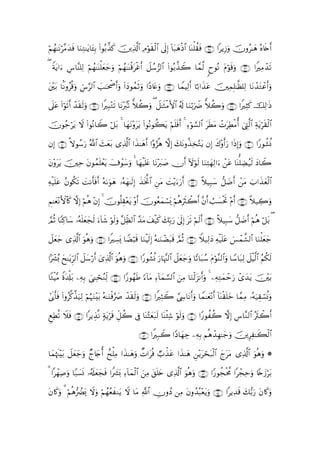 أَخَاهُ هَٰرُونَ وَزِيرًا ۝ فَقُلْنَا اذْهَبَا إِلَى الْقَوْمِ الَّذِينَ كَذَّبُوا بِآيَاتِنَا فَدَمَّرْنَاهُمْ
تَدْمِيرًا ۝ وَقَوْمَ نُوحٍ لَّمَّا كَذَّبُوا الرُّسُلَ أَغْرَقْنَاهُمْ وَجَعَلْنَاهُمْ لِلنَّاسِ آيَةً ۖ
وَأَعْتَدْنَا لِلظَّالِمِينَ عَذَابًا أَلِيمًا ۝ وَعَادًا وَثَمُودَ وَأَصْحَابَ الرَّسِّ وَقُرُونًا بَيْنَ
ذَٰلِكَ كَثِيرًا ۝ وَكُلًّا ضَرَبْنَا لَهُ الْأَمْثَالَ ۖ وَكُلًّا تَبَّرْنَا تَتْبِيرًا ۝ وَلَقَدْ أَتَوْا عَلَى
الْقَرْيَةِ الَّتِي أُمْطِرَتْ مَطَرَ السَّوْءِ ۚ أَفَلَمْ يَكُونُوا يَرَوْنَهَا ۚ بَلْ كَانُوا لَا يَرْجُونَ
نُشُورًا ۝ وَإِذَا رَأَوْكَ إِن يَتَّخِذُونَكَ إِلَّا هُزُوًا أَهَٰذَا الَّذِي بَعَثَ اللَّهُ رَسُولًا ۝ إِن
كَادَ لَيُضِلُّنَا عَنْ آلِهَتِنَا لَوْلَا أَن صَبَرْنَا عَلَيْهَا ۚ وَسَوْفَ يَعْلَمُونَ حِينَ يَرَوْنَ
الْعَذَابَ مَنْ أَضَلُّ سَبِيلًا ۝ أَرَأَيْتَ مَنِ اتَّخَذَ إِلَٰهَهُ هَوَاهُ أَفَأَنتَ تَكُونُ عَلَيْهِ
وَكِيلًا ۝ أَمْ تَحْسَبُ أَنَّ أَكْثَرَهُمْ يَسْمَعُونَ أَوْ يَعْقِلُونَ ۚ إِنْ هُمْ إِلَّا كَالْأَنْعَامِ
ۖ بَلْ هُمْ أَضَلُّ سَبِيلًا ۝ أَلَمْ تَرَ إِلَىٰ رَبِّكَ كَيْفَ مَدَّ الظِّلَّ وَلَوْ شَاءَ لَجَعَلَهُ سَاكِنًا ثُمَّ
جَعَلْنَا الشَّمْسَ عَلَيْهِ دَلِيلًا ۝ ثُمَّ قَبَضْنَاهُ إِلَيْنَا قَبْضًا يَسِيرًا ۝ وَهُوَ الَّذِي جَعَلَ
لَكُمُ اللَّيْلَ لِبَاسًا وَالنَّوْمَ سُبَاتًا وَجَعَلَ النَّهَارَ نُشُورًا ۝ وَهُوَ الَّذِي أَرْسَلَ الرِّيَاحَ بُشْرًا
بَيْنَ يَدَيْ رَحْمَتِهِ ۚ وَأَنزَلْنَا مِنَ السَّمَاءِ مَاءً طَهُورًا ۝ لِّنُحْيِيَ بِهِ بَلْدَةً مَّيْتًا
وَنُسْقِيَهُ مِمَّا خَلَقْنَا أَنْعَامًا وَأَنَاسِيَّ كَثِيرًا ۝ وَلَقَدْ صَرَّفْنَاهُ بَيْنَهُمْ لِيَذَّكَّرُوا فَأَبَىٰ
أَكْثَرُ النَّاسِ إِلَّا كُفُورًا ۝ وَلَوْ شِئْنَا لَبَعَثْنَا فِي كُلِّ قَرْيَةٍ نَّذِيرًا ۝ فَلَا تُطِعِ
الْكَافِرِينَ وَجَاهِدْهُم بِهِ جِهَادًا كَبِيرًا ۝
۞ وَهُوَ الَّذِي مَرَجَ الْبَحْرَيْنِ هَٰذَا عَذْبٌ فُرَاتٌ وَهَٰذَا مِلْحٌ أُجَاجٌ وَجَعَلَ بَيْنَهُمَا
بَرْزَخًا وَحِجْرًا مَّحْجُورًا ۝ وَهُوَ الَّذِي خَلَقَ مِنَ الْمَاءِ بَشَرًا فَجَعَلَهُ نَسَبًا وَصِهْرًا ۗ
وَكَانَ رَبُّكَ قَدِيرًا ۝ وَيَعْبُدُونَ مِن دُونِ اللَّهِ مَا لَا يَنفَعُهُمْ وَلَا يَضُرُّهُمْ ۗ وَكَانَ